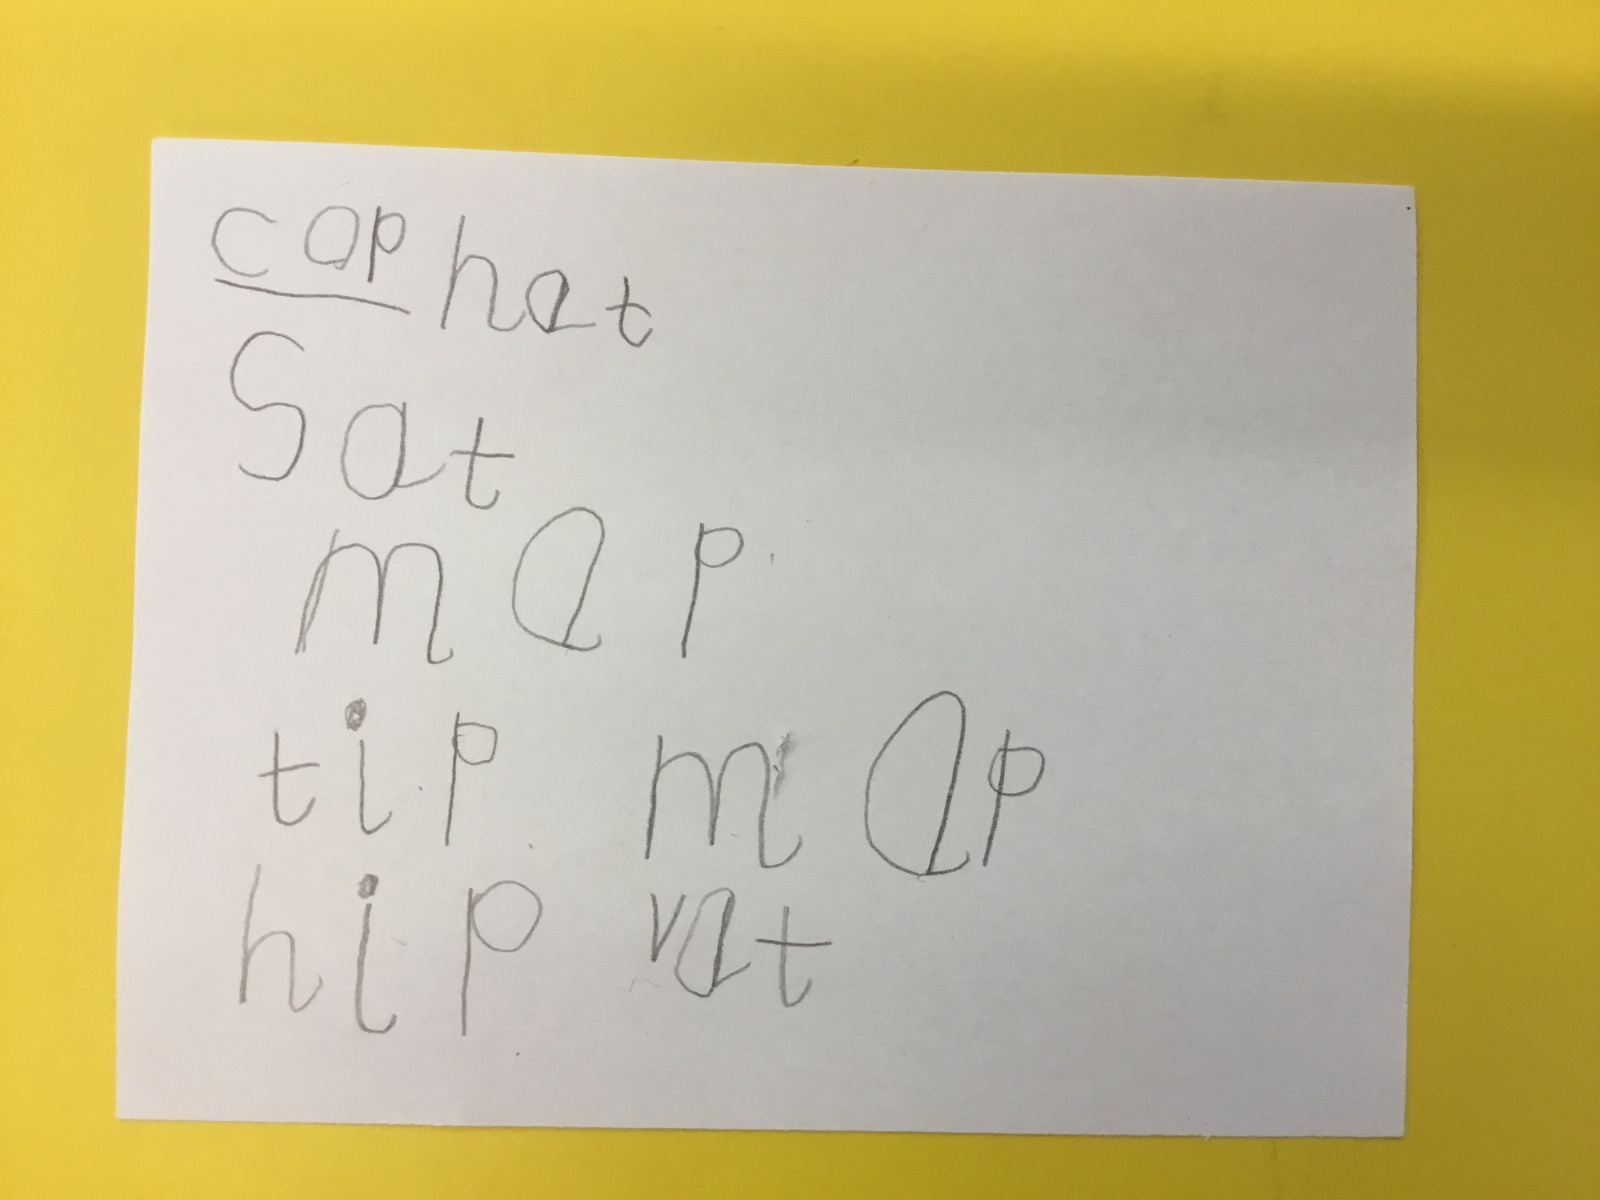 cap hat
Sat
map
tip map
hip rat